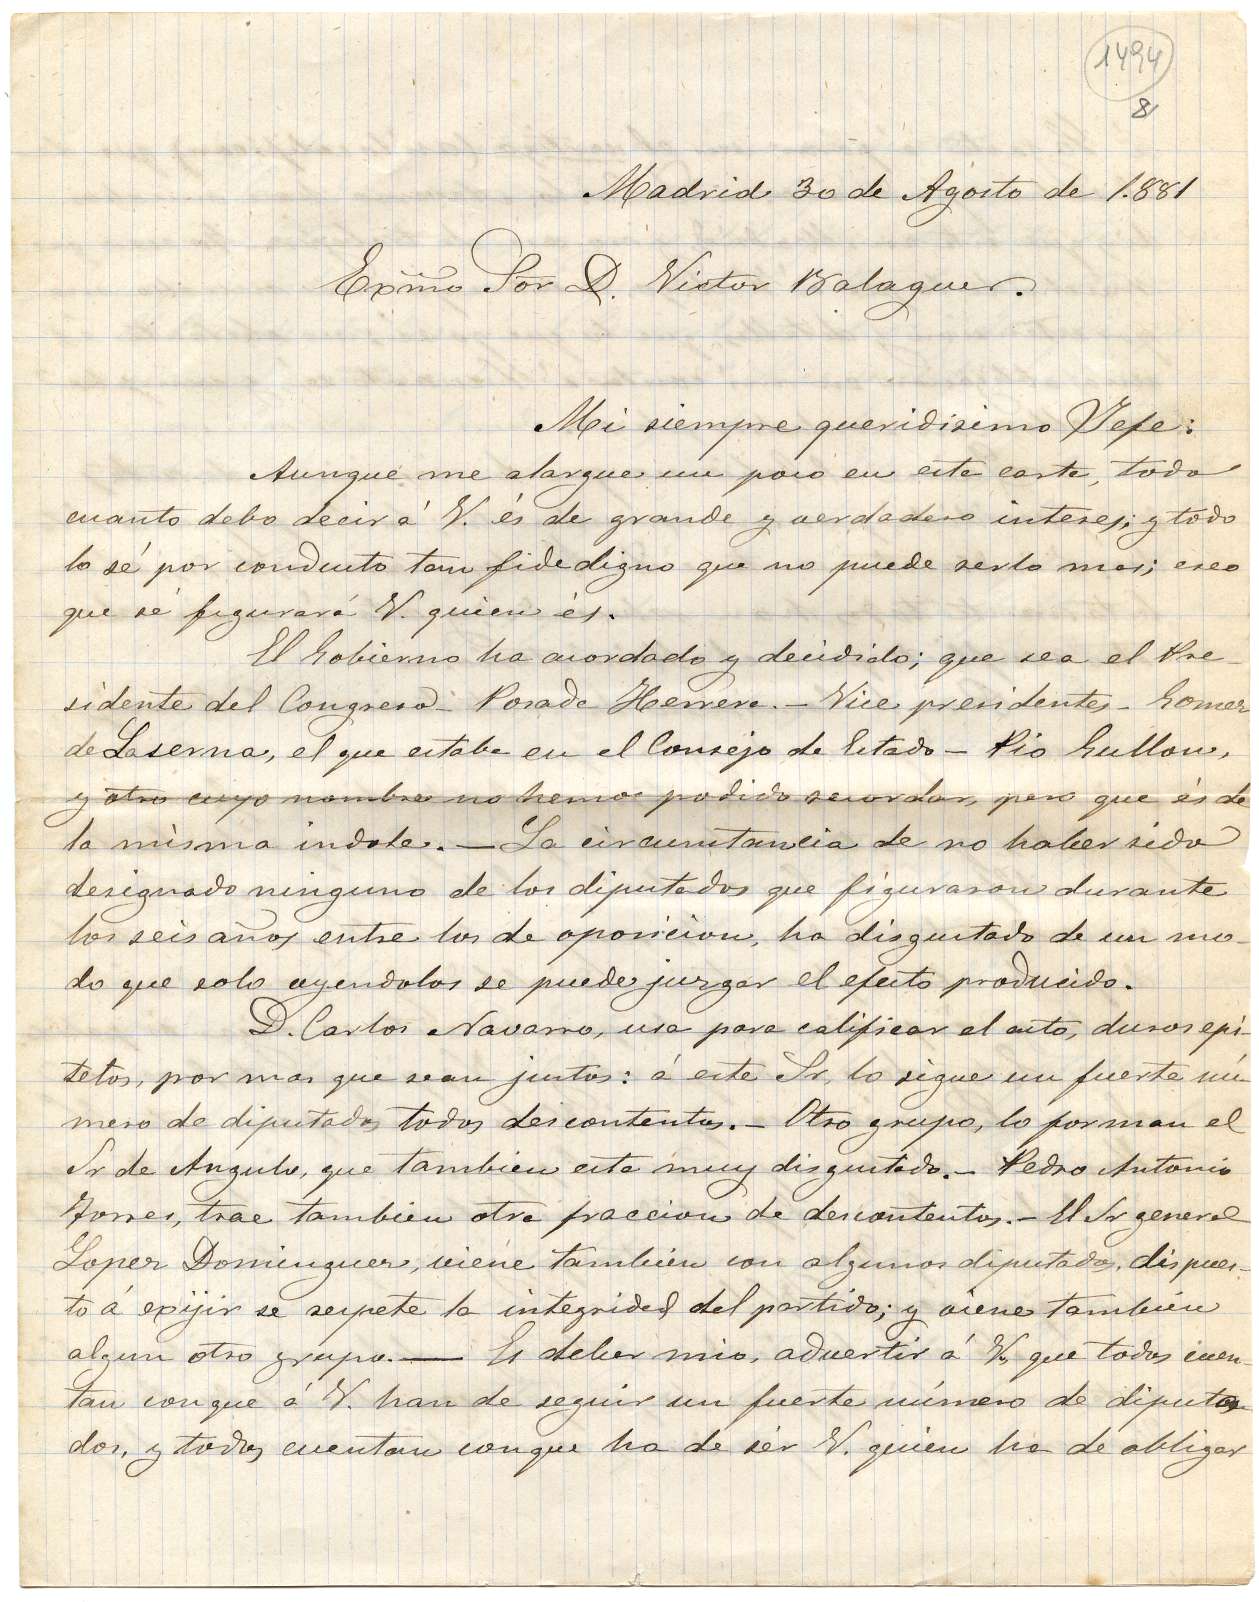 1494
8
Madrid 30 de Agosto de 1.881
Exmo Sor D. Victor Balaguer.
Mi siempre queridisimo Jefe:
Aunque me alargue un poco en esta carta, todo
cuanto debo decir á V. és de grande y verdadero interes; y todo
lo sé por conducto tan fidedigno que no puede serlo mas; creo
que sé figurará V. quien és.
El Gobierno ha acordado y decidido; que sea el Pre-
sidente del Congreso - Posada Herrera. - Vice presidentes - Gomez
de Laserna, el que estaba en el Consejo de Estado - Pio Gullon,
y otro cuyo nombre no hemos podido recordar, pero que és de
la misma indole. - La circunstancia de no haber sido
designado ninguno de los diputados que figuraron durante
los seis años entre los de oposicion, ha disgustado de un mo-
do que solo oyendolos se puede juzgar el efecto producido.
D. Carlos Navarro, usa para calificar el acto, duros epi-
tetos, por mas que sean justos: á este Sr. lo sigue un fuerte nú-
mero de diputados todos descontentos. - Otro grupo, lo forman el
Sr de Angulo, que tambien esta muy disgustado. - Pedro Antonio
Torres, trae tambien otra fraccion de descontentos. - El Sr general
Lopez Dominguez, viene tambien con algunos diputados, dispues-
to á exijir se respete la integridad del partido; y viene tambien
algun otro grupo. - Es deber mio, advertir á V. que todos cuen-
tan conque á V. han de seguir un fuerte número de diputa-
dos, y todos cuentan conque ha de sér V. quien ha de obligar